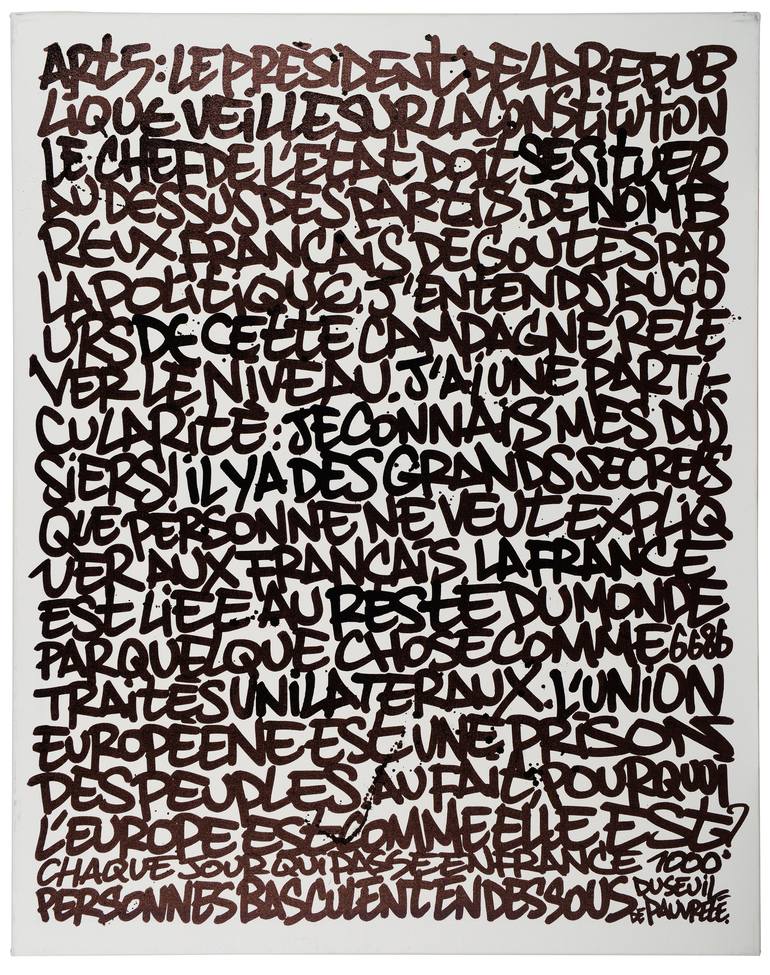 ARt5: LE PRÉSIDENt DE LA REPUB
LIQUE VEILLE SUR LA CONSTITUTION
LE CHEF DE L'ETAT DOIT SE SITUER
AU DESSUS DES PARTIS. DE NOMB
REUX FRANCAIS DEGOUTES PAR
LA POLITIQUE. J'ENTENDS AU CO
URS DE CETTE CAMPAGNE RELE
VER LE NIVEAU. J'AI UNE PARTI-
CULARITE: JE CONNAIS MES DOS
SIERS! IL Y A DES GRANDS SECRETS
QUE PERSONNE NE VEUT EXPLIQ
UER AUX FRANCAIS LA FRANCE
EST LIEE AU RESTE DU MONDE
PAR QUELQUE CHOSE COMME 6686
TRAITES UNILATERAUX. L'UNION
EUROPEENE EST UNE PRISON
DES PEUPLES. AU FAIT, POURQUOI
L'EUROPE EST COMME ELLE EST?
CHAQUE JOUR QUI PASSE EN FRANCE 1000
PERSONNES BASCULENT EN DESSOUS DU SEUIL
DE PAUVRETE.